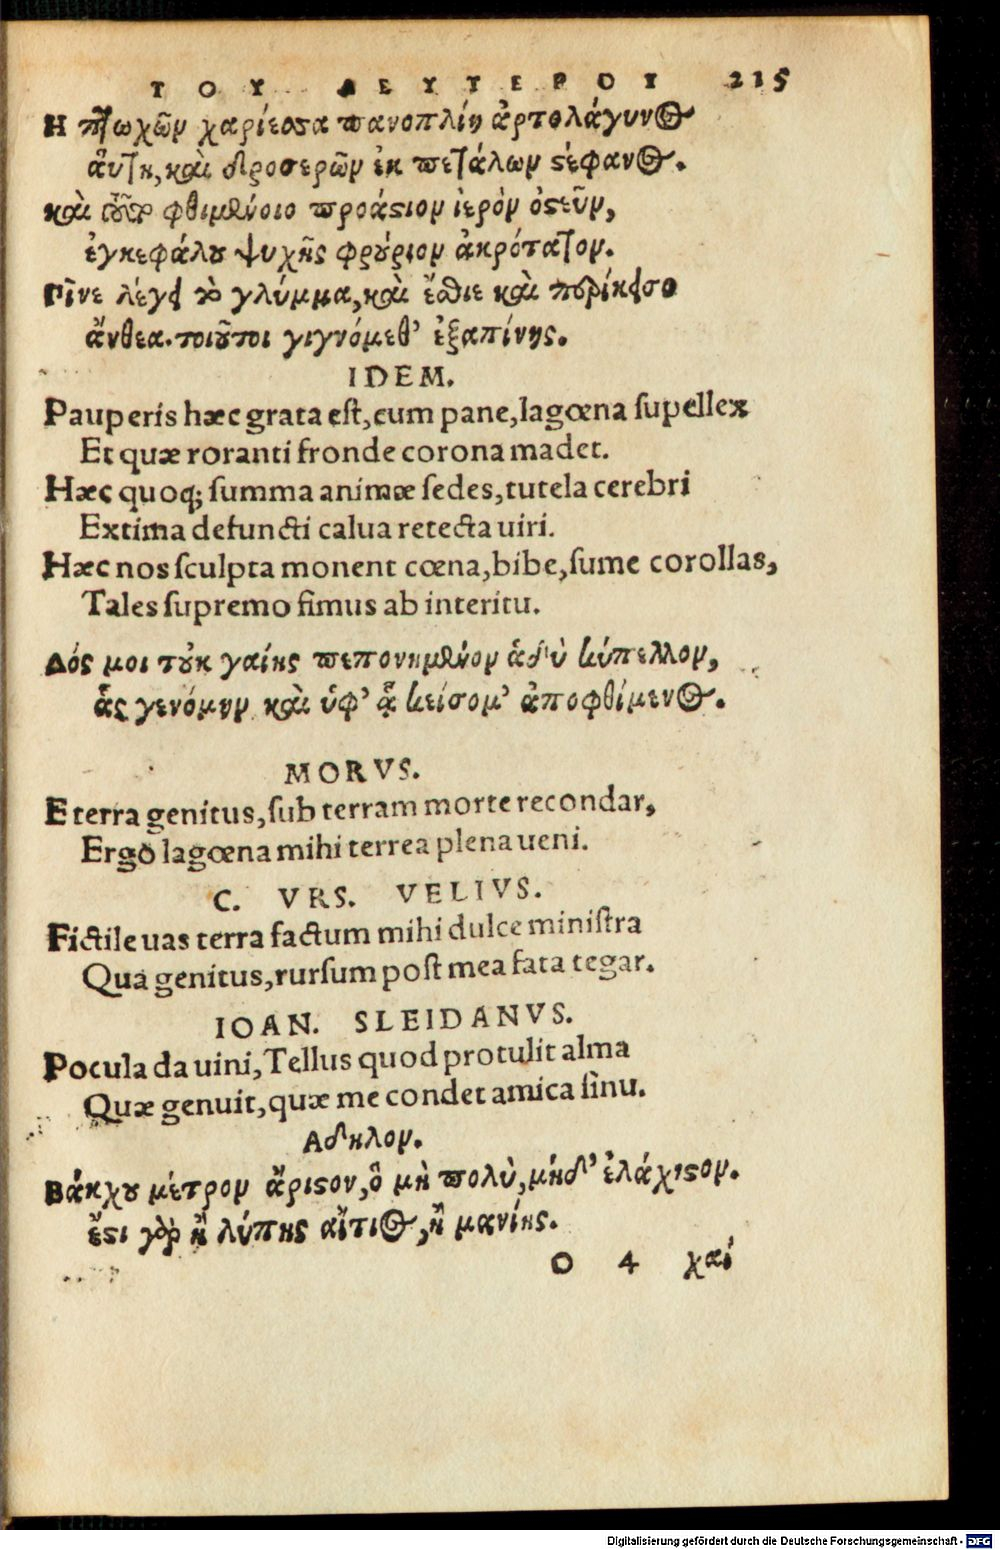 ΤΟΥ ΔΕΥΤΕΡΟΥ 215
Η πτωχῶν χαρίεσσα πανοπλίη ἀρτολάγυνος
αὕτη, καὶ δροσερῶν ἐκ πετάλων στέφανος.
καὶ τοῦτο φθιμένοιο προάστιον ἱερὸν ὀστεῦν,
ἐγκεφάλου ψυχῆς φρούριον ἀκρότατον.
Πῖνε λέγει τὸ γλύμμα, καὶ ἔσθιε καὶ περίκεισο
ἄνθεα. τοιοῦτοι γιγνόμεθ’ ἐξαπίνης.
IDEM.
Pauperis hæc grata est, cum pane, lagœna supellex
Et quæ roranti fronde corona madet.
Hæc quoq; summa animæ sedes, tutela cerebri
Extima defuncti calua retecta uiri.
Hæc nos sculpta monent cœna, bibe, sume corollas,
Tales supremo simus ab interitu.
Δός μοι τοὐκ γαίης πεπονημένον ἁδὺ κύπελλον,
ἇς γενόμην καὶ ὑφ’ ᾇ κείσομ’ ἀποφθίμενος.
MORVS.
E terra genitus, sub terram morte recondar,
Ergò lagœna mihi terrea plena ueni.
C. VRS. VELIVS.
Fictile uas terra factum mihi dulce ministra
Qua genitus, rursum post mea fata tegar.
IOAN. SLEIDANVS.
Pocula da uini, Tellus quod protulit alma
Quæ genuit, quæ me condet amica sinu.
Αδηλον.
Βάκχου μέτρον ἄριστον, ὃ μὴ πολὺ, μηδ’ ἐλάχιστον.
ἔστι γὰρ ἢ λύπης αἴτιος, ἢ μανίης.
O 4 χαί
Digitalisierung gefördert durch die Deutsche Forschungsgemeinschaft - DFG